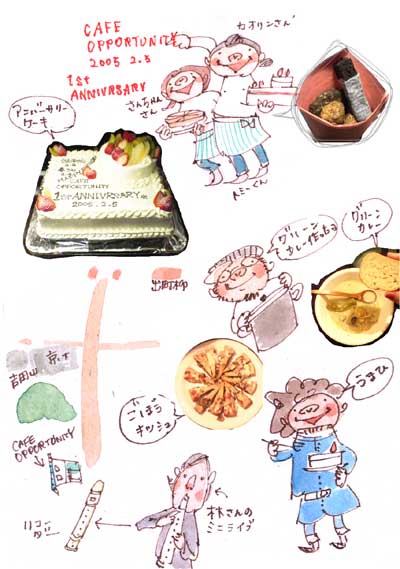 CAFE
OPPORTUNITY
2005 2.5
1st
ANNIVRSARY
カオリンさん
アニバーサリー
ケーキ
さんちゃん
さん
トミーくん
OPPORTUNITY
1st ANNIVRSARY
2005.2.5
グリーン
カレー作ったよ
グリーン
カレー
出町柳
京大
吉田山
ごぼう
キッシュ
うまひ
CAFE
OPPORTUNITY
リコー
ダー
林さんの
ミニライブ